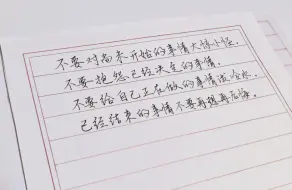 不要对尚未开始的事情大惊小怪。
不要抱怨已经决定的事情。
不要给自己正在做的事情泼冷水。
已经结束的事情不要再想再后悔。